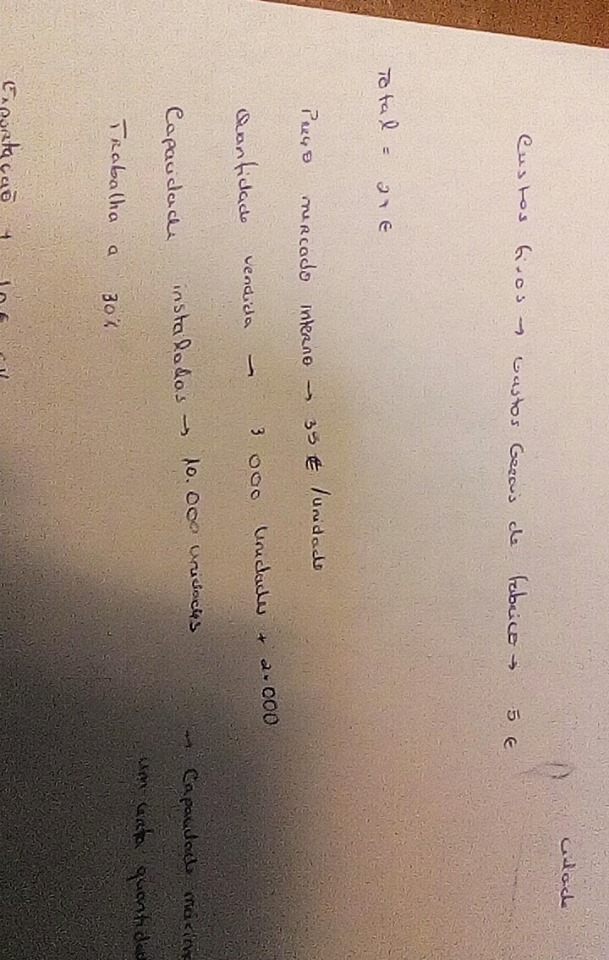 cidade
Custos fixos → Gastos Gerais de fabrico → 5 €
Total = 27 €
Preço mercado interno → 35 € /unidade
Quantidade vendida → 3 000 Unidades + 2.000
Capacidade instaladas → 10.000 unidades → Capacidade máxim
um certa quantidad
Trabalha a 30%
Exportação + 10€